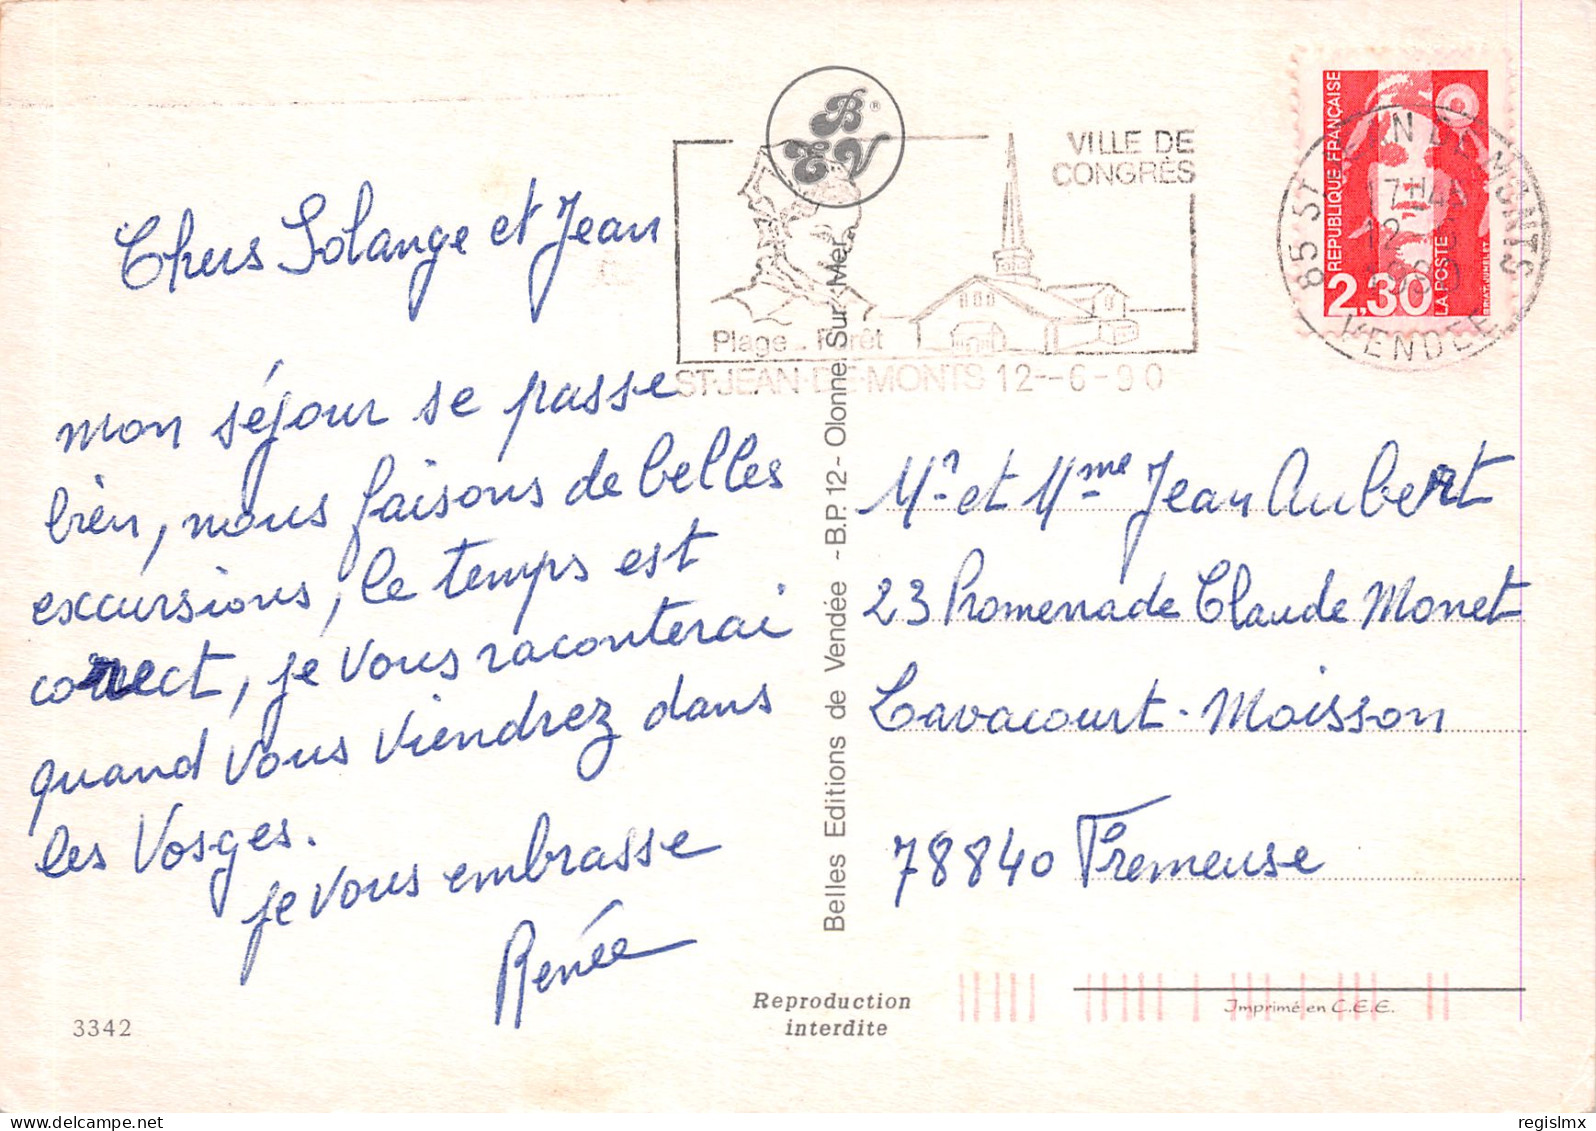 Chers Solange et Jean
mon séjour se passe
bien, nous faisons de belles
excursions, le temps est
correct, je vous raconterai
quand vous viendrez dans
les Vosges.
je vous embrasse
Renée
3342
BEV®
VILLE DE
CONGRÈS
Plage - Forêt
ST-JEAN-DE-MONTS 12--6-90
Belles Editions de Vendée - B.P. 12 - Olonne-Sur-Mer
Reproduction
interdite
REPUBLIQUE FRANÇAISE
2,30
LA POSTE
BRIAT-JUMELET
85 ST JEAN DE MONTS
17H45
12-6
1990
VENDEE
Mr et Mme Jean Aubert
23 Promenade Claude Monet
Lavacourt - Moisson
78840 Fremeuse
Imprimé en C.E.E.
delcampe.net
regislmx